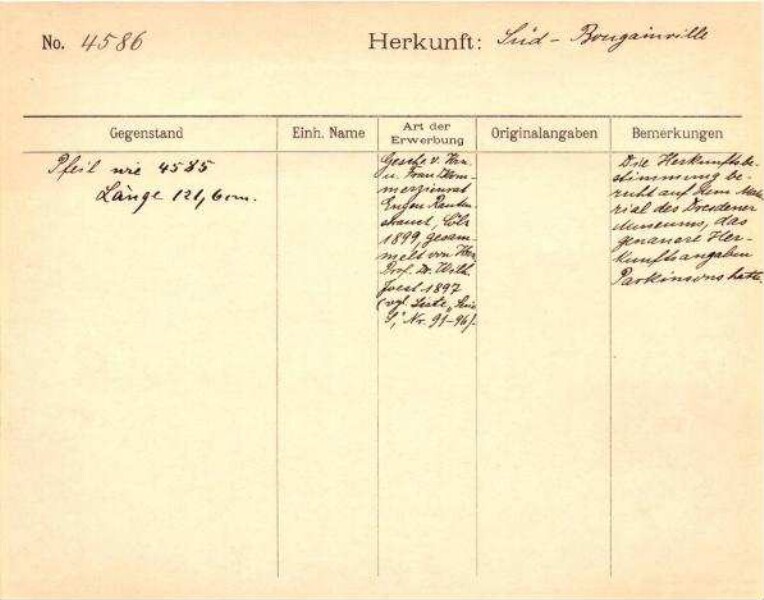 No. 4586
Herkunft: Süd - Bougainville
Gegenstand
Einh. Name
Art der
Erwerbung
Originalangaben
Bemerkungen
Pfeil wie 4585
Länge 121,6 cm.
Gesch. v. Hrn.
u. Frau Kom-
merzienrat
Eugen Rauten-
strauch, Cöln
1899, gesam-
melt von Hrn.
Prof. Dr. Wilh.
Joest 1897
(vgl. Liste
S," Nr. 91-96).
Die Herkunftsbe-
stimmung be-
ruht auf dem Mate-
rial des Dresdener
Museums, das
genauere Her-
kunftsangaben
Parkinsons hatte.